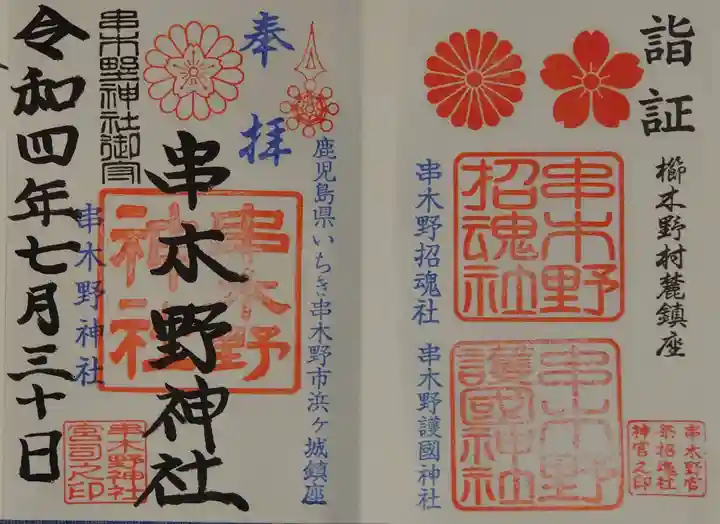 詣証
櫛木野村麓鎮座
串木野招魂社
串木野招魂社
串木野護國神社
串木野護國神社
奉拝
鹿児島県いちき串木野市浜ヶ城鎮座
串木野神社
串木野神社
串木野神社
串木野神社
宮司之印
令和四年七月三十日